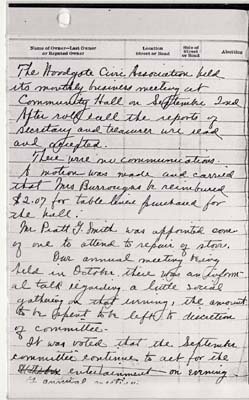 Name of Owner—Last Owner
or Reputed Owner
Location
Street or Road
Side of
Street
or Road
Abutting
The Woodgate Civic Association held
its monthly business meeting at
Community Hall on Septembe 2nd
After roll call the reports of
secretary and treasurer were read
and accepted.
There were no communications.
A motion was made and carried
that Mrs Burroughs be reimbursed
$2.07 for table linen purchased for
the hall.
Mr Pratt G. Smith was appointed com.
of one to attend to repair of stove.
Our annual meeting being
held in October there was an inform-
al talk regarding a little social
gathering on that evening, the amount
to be spent to be left to discretion
of committee.
It was voted that the Septembe
committee continues to act for the
entertainment on evening
annual meeting.